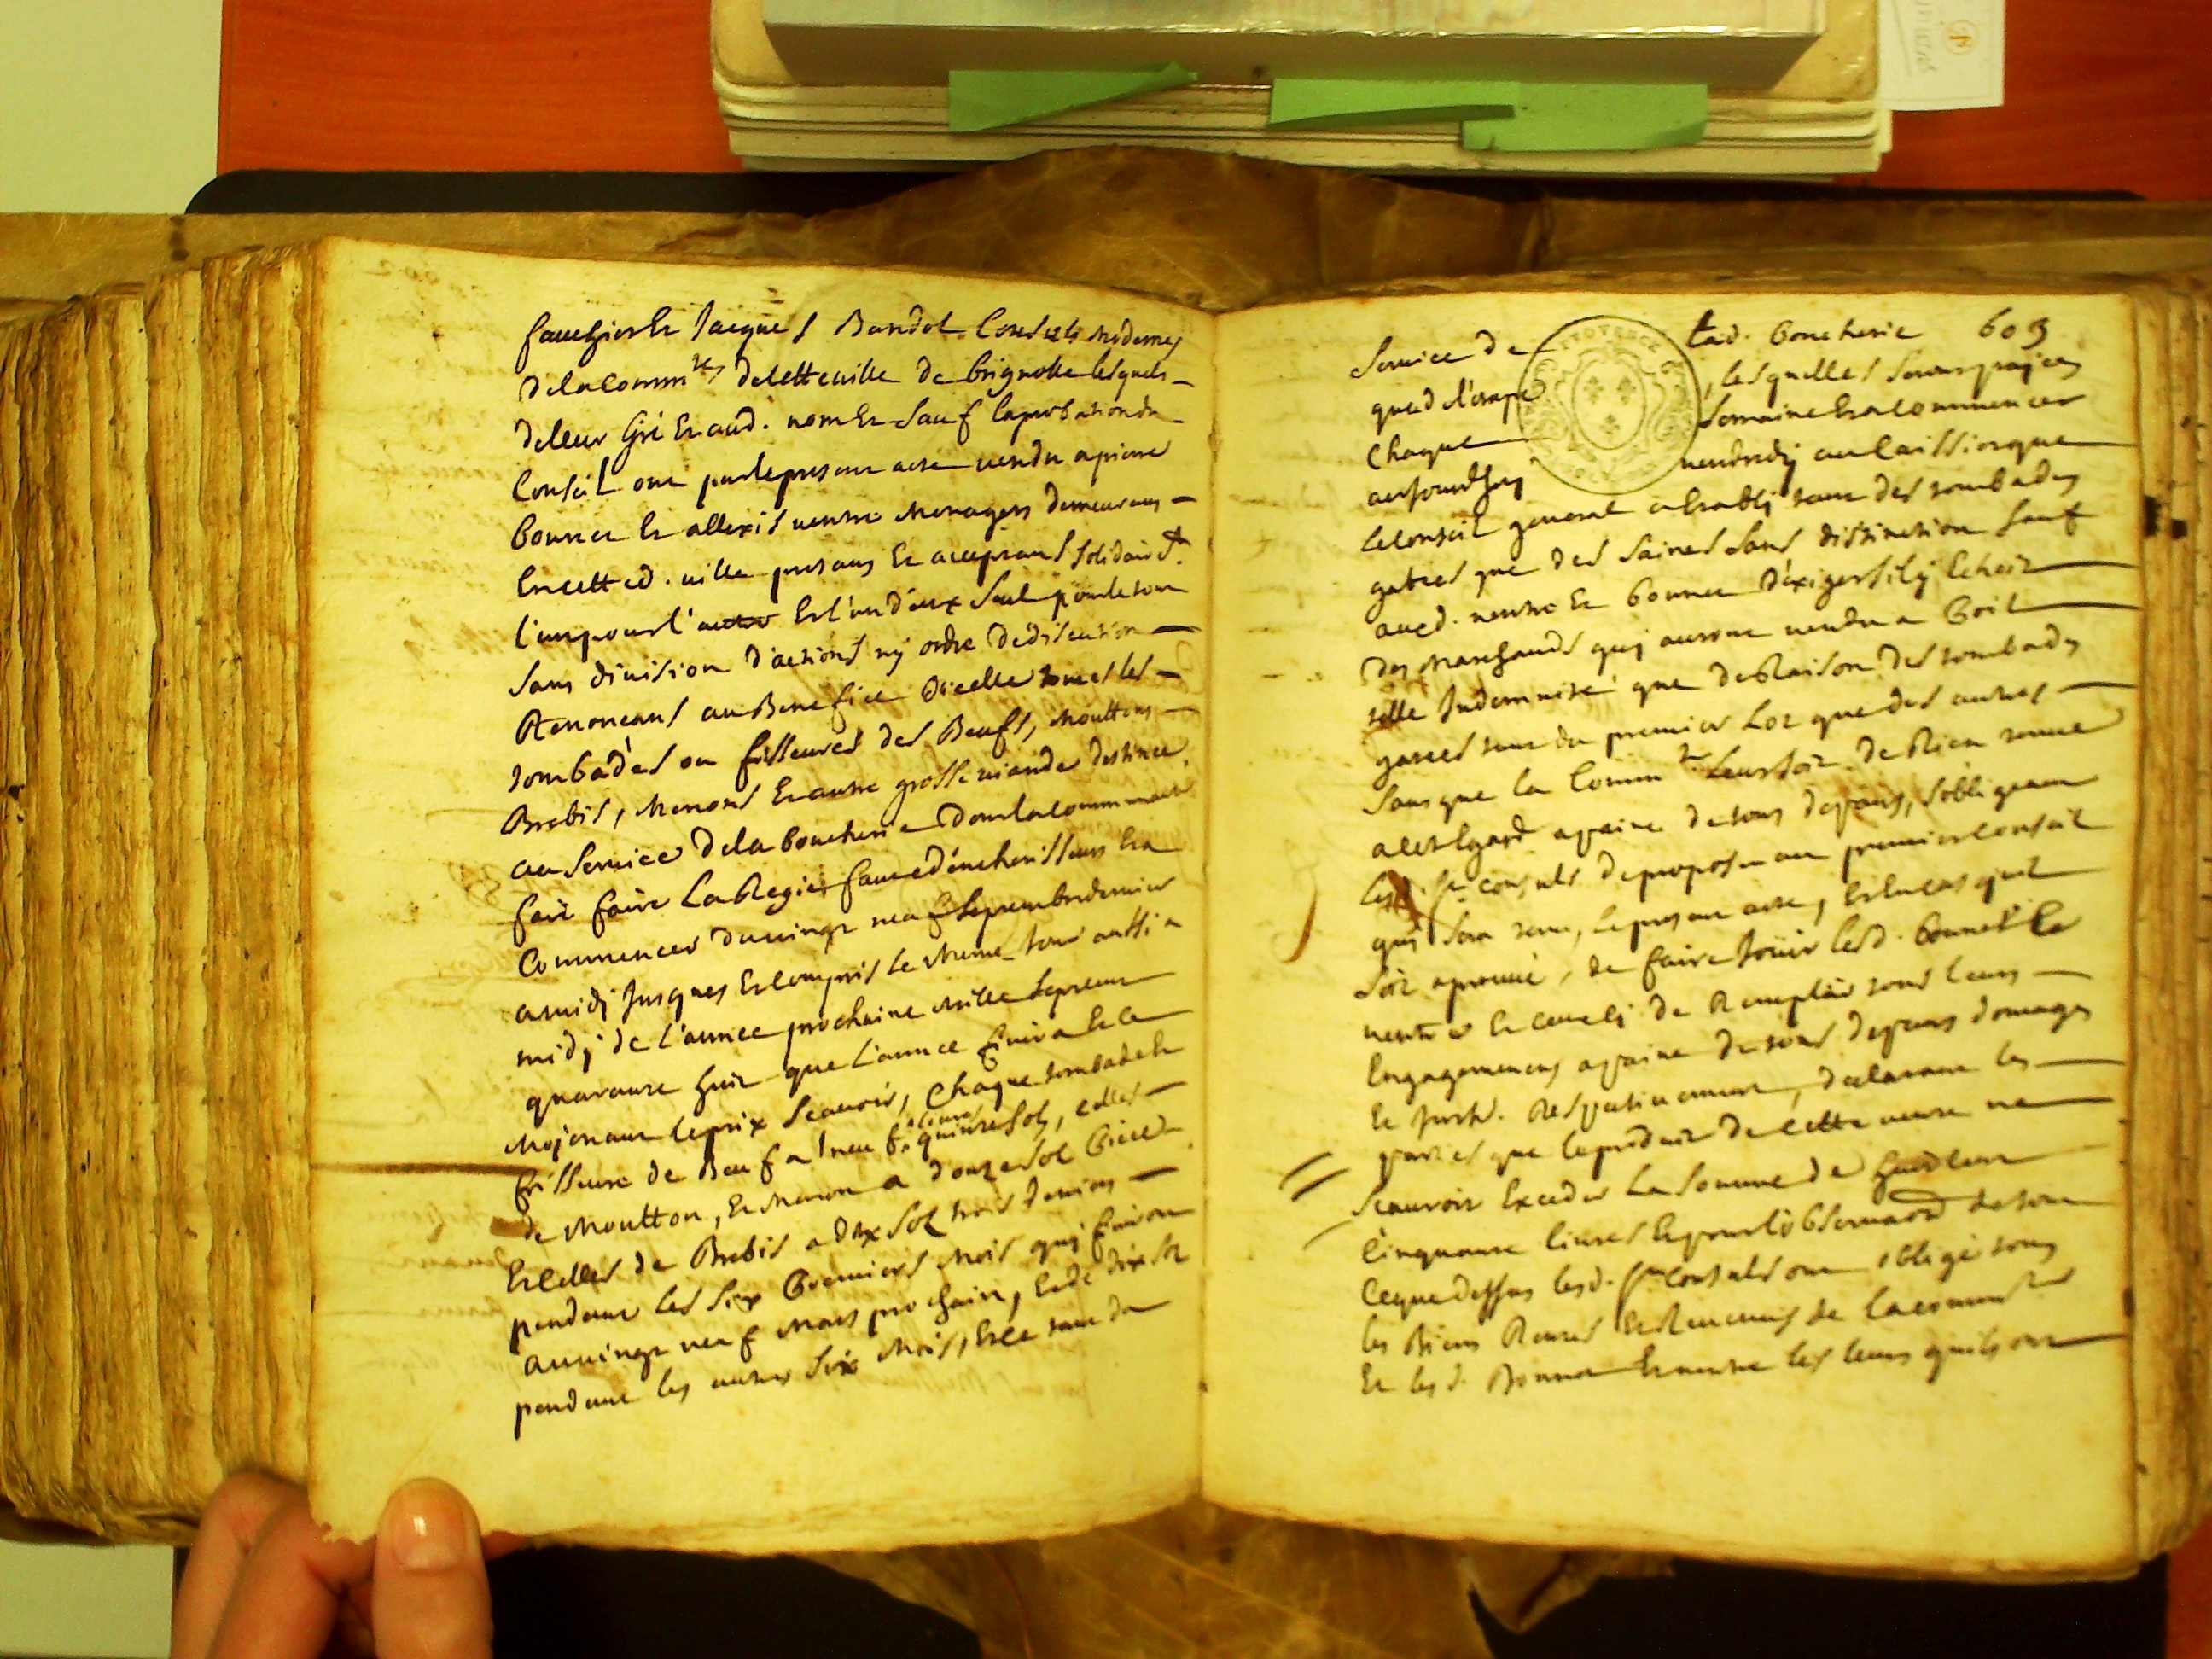 fauchier Et Jacques Bandol Consuls modernes
de la Comm.té de cette ville de brignolle lesquels
de leur Gré Et aud. nom Et Sauf laprobation du
Conseil ont par le presant acte vendu a pierre
Bonnet Et allexis ventre Menagers demeurans
En cette d. ville presans Et acceptans solidairemt.
l'un pour l'autre Et l'un d'eux Seul pour le tout
Sans division d'actions ny ordre de discution
Renoncans au Benefice dicelle toutes les
tombades ou frissures des Beufs, Mouttons
Brebis, Menons Et autre grosse viande destinée
au Service de la boucherie dont la communauté
fait faire La Regie faute d'encherisseurs Et a
Commencer du vingt neuf septembre dernier
a midi Jusques Et compris le meme Jour aussi a
midj de l'annee prochaine mille sept cent
quarante huit que l'annee finira Et ce
Mojenant le prix Scavoir, Chaque tombade Et
frissure de Beuf a neuf quinze sols, celles
de Moutton, Et Menon a douze sol piece
Et celles de Brebis a dix sol trois deniers
pendant les six Premiers Mois quj finiront
au vingt neuf Mars prochain, Et de dix sol
pendant les autres Six Mois, Et ce tant du
lad. boucherie 603
Service de
, lesquelles seront payées
que d
Chaque Semaine Et a Commencer
aujourdhuy vendredy
le Conseil general a Etabli tant des tombades
gatées que des Saines Sans distinction Sauf
aud. ventre Et bonnet d'exiger sily Echoit
des Marchands quj auront vendu a
telle Indemnité que de Raison des tombades
gatées tant du premier Lot que des autres
Sans que la Comm.té Leur soit de Rien tenue
a cet Egard a paine de tous depans, sobligeant
Lesd. Srs consuls de proposer au premier Conseil
qui Sera tenu, le presant acte, Et En cas quil
Soit aprouvé, de faire Jouir lesd. Bonnet Et
ventre Et ceux cj de Remplir tous leurs
Engagemens a paine de tous depans domages
Et Jnts. Respectivement, declarant les
parties que le produit de cette vente ne
Scauroit Exceder La Somme de huit cent
Cinquante livres Et pour lobservaon de tout
Ceque dessus lesd. Srs Consuls ont obligé tous
les Biens Rentes Et Revenus de la commté
Et lesd. Bonnet Et ventre les leurs quils ont